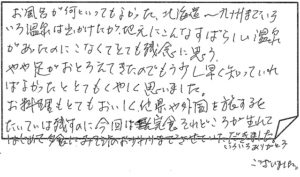 お風呂が何といってもよかった、北海道〜九州までいろ
いろ温泉は出かけたが、地元にこんなすばらしい温泉
があったのにこなくてとても残念に思う。
やや足がおとろえてきたのでもう少し早く知っていれ
ばよかったととてもくやしく思いました。
お料理もとてもおいしく他県や外国を旅すると
たいていは残すのに今回は完食それどころか生れて
はじめて夕食にお茶づけのおかわりまでさせていただきました
いろいろありがとう
ございました。